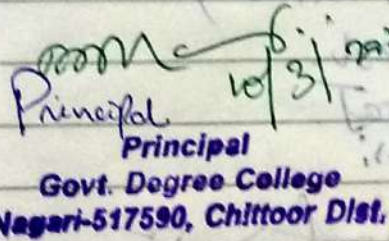 10/3/
Principal
Principal
Govt. Degree College
Nagari-517590, Chittoor Dist.